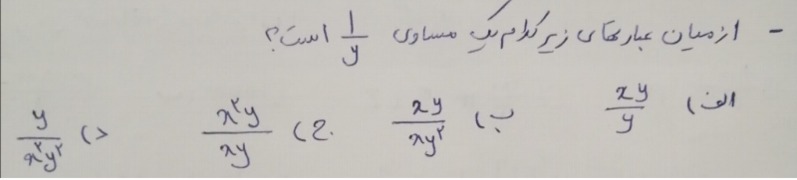 - از میان عبارتهای زیر کدام یک مساوی 1/y است؟
الف) xy/y ب) xy/xy² ج) x²y/xy د) y/x²y²